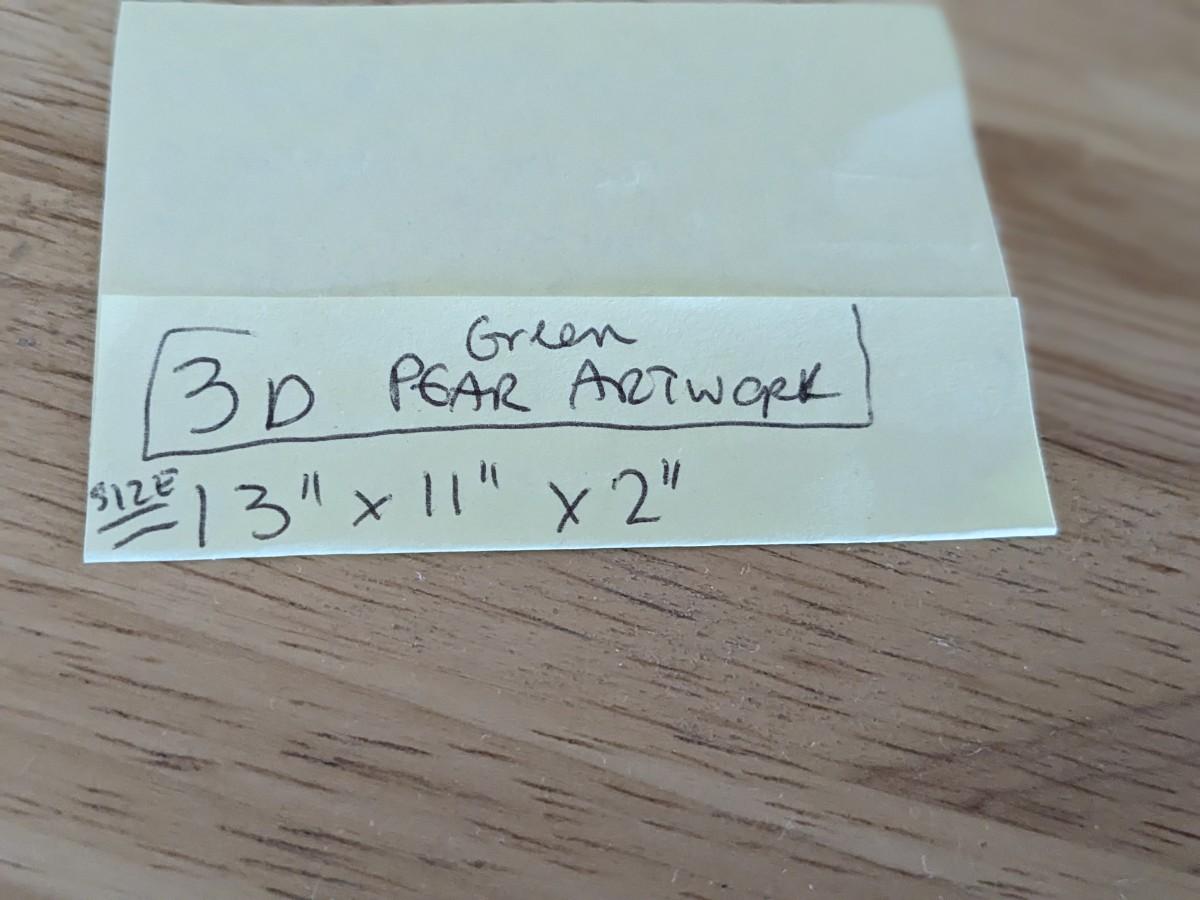 Green
3D PEAR ARTWORK
SIZE 13" x 11" x 2"